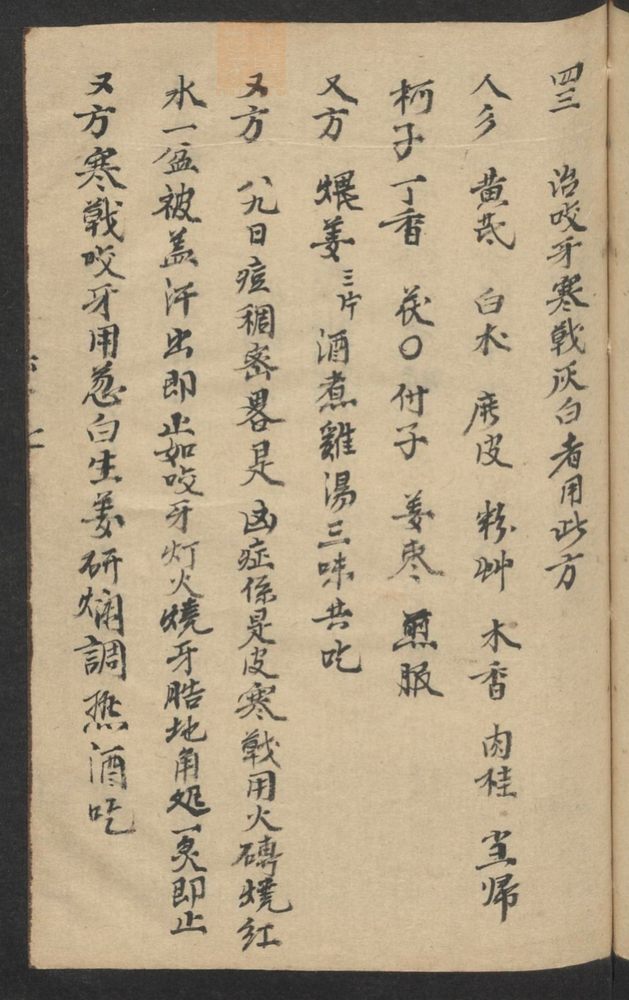 四三 治咬牙寒戰灰白者用此方
人参 黄芪 白朮 陳皮 粉艸 木香 肉桂 当帰
柯子 丁香 茯〇 付子 姜枣 煎服
又方 煨姜三片 酒煮雞湯三味共吃
又方 八九日痘稠密畧是凶症係是皮寒戰用火磚燒紅
水一盆被盖汗出即止如咬牙灯火燒牙 地角处一炙即止
又方寒戰咬牙用葱白生姜研烟調热酒吃